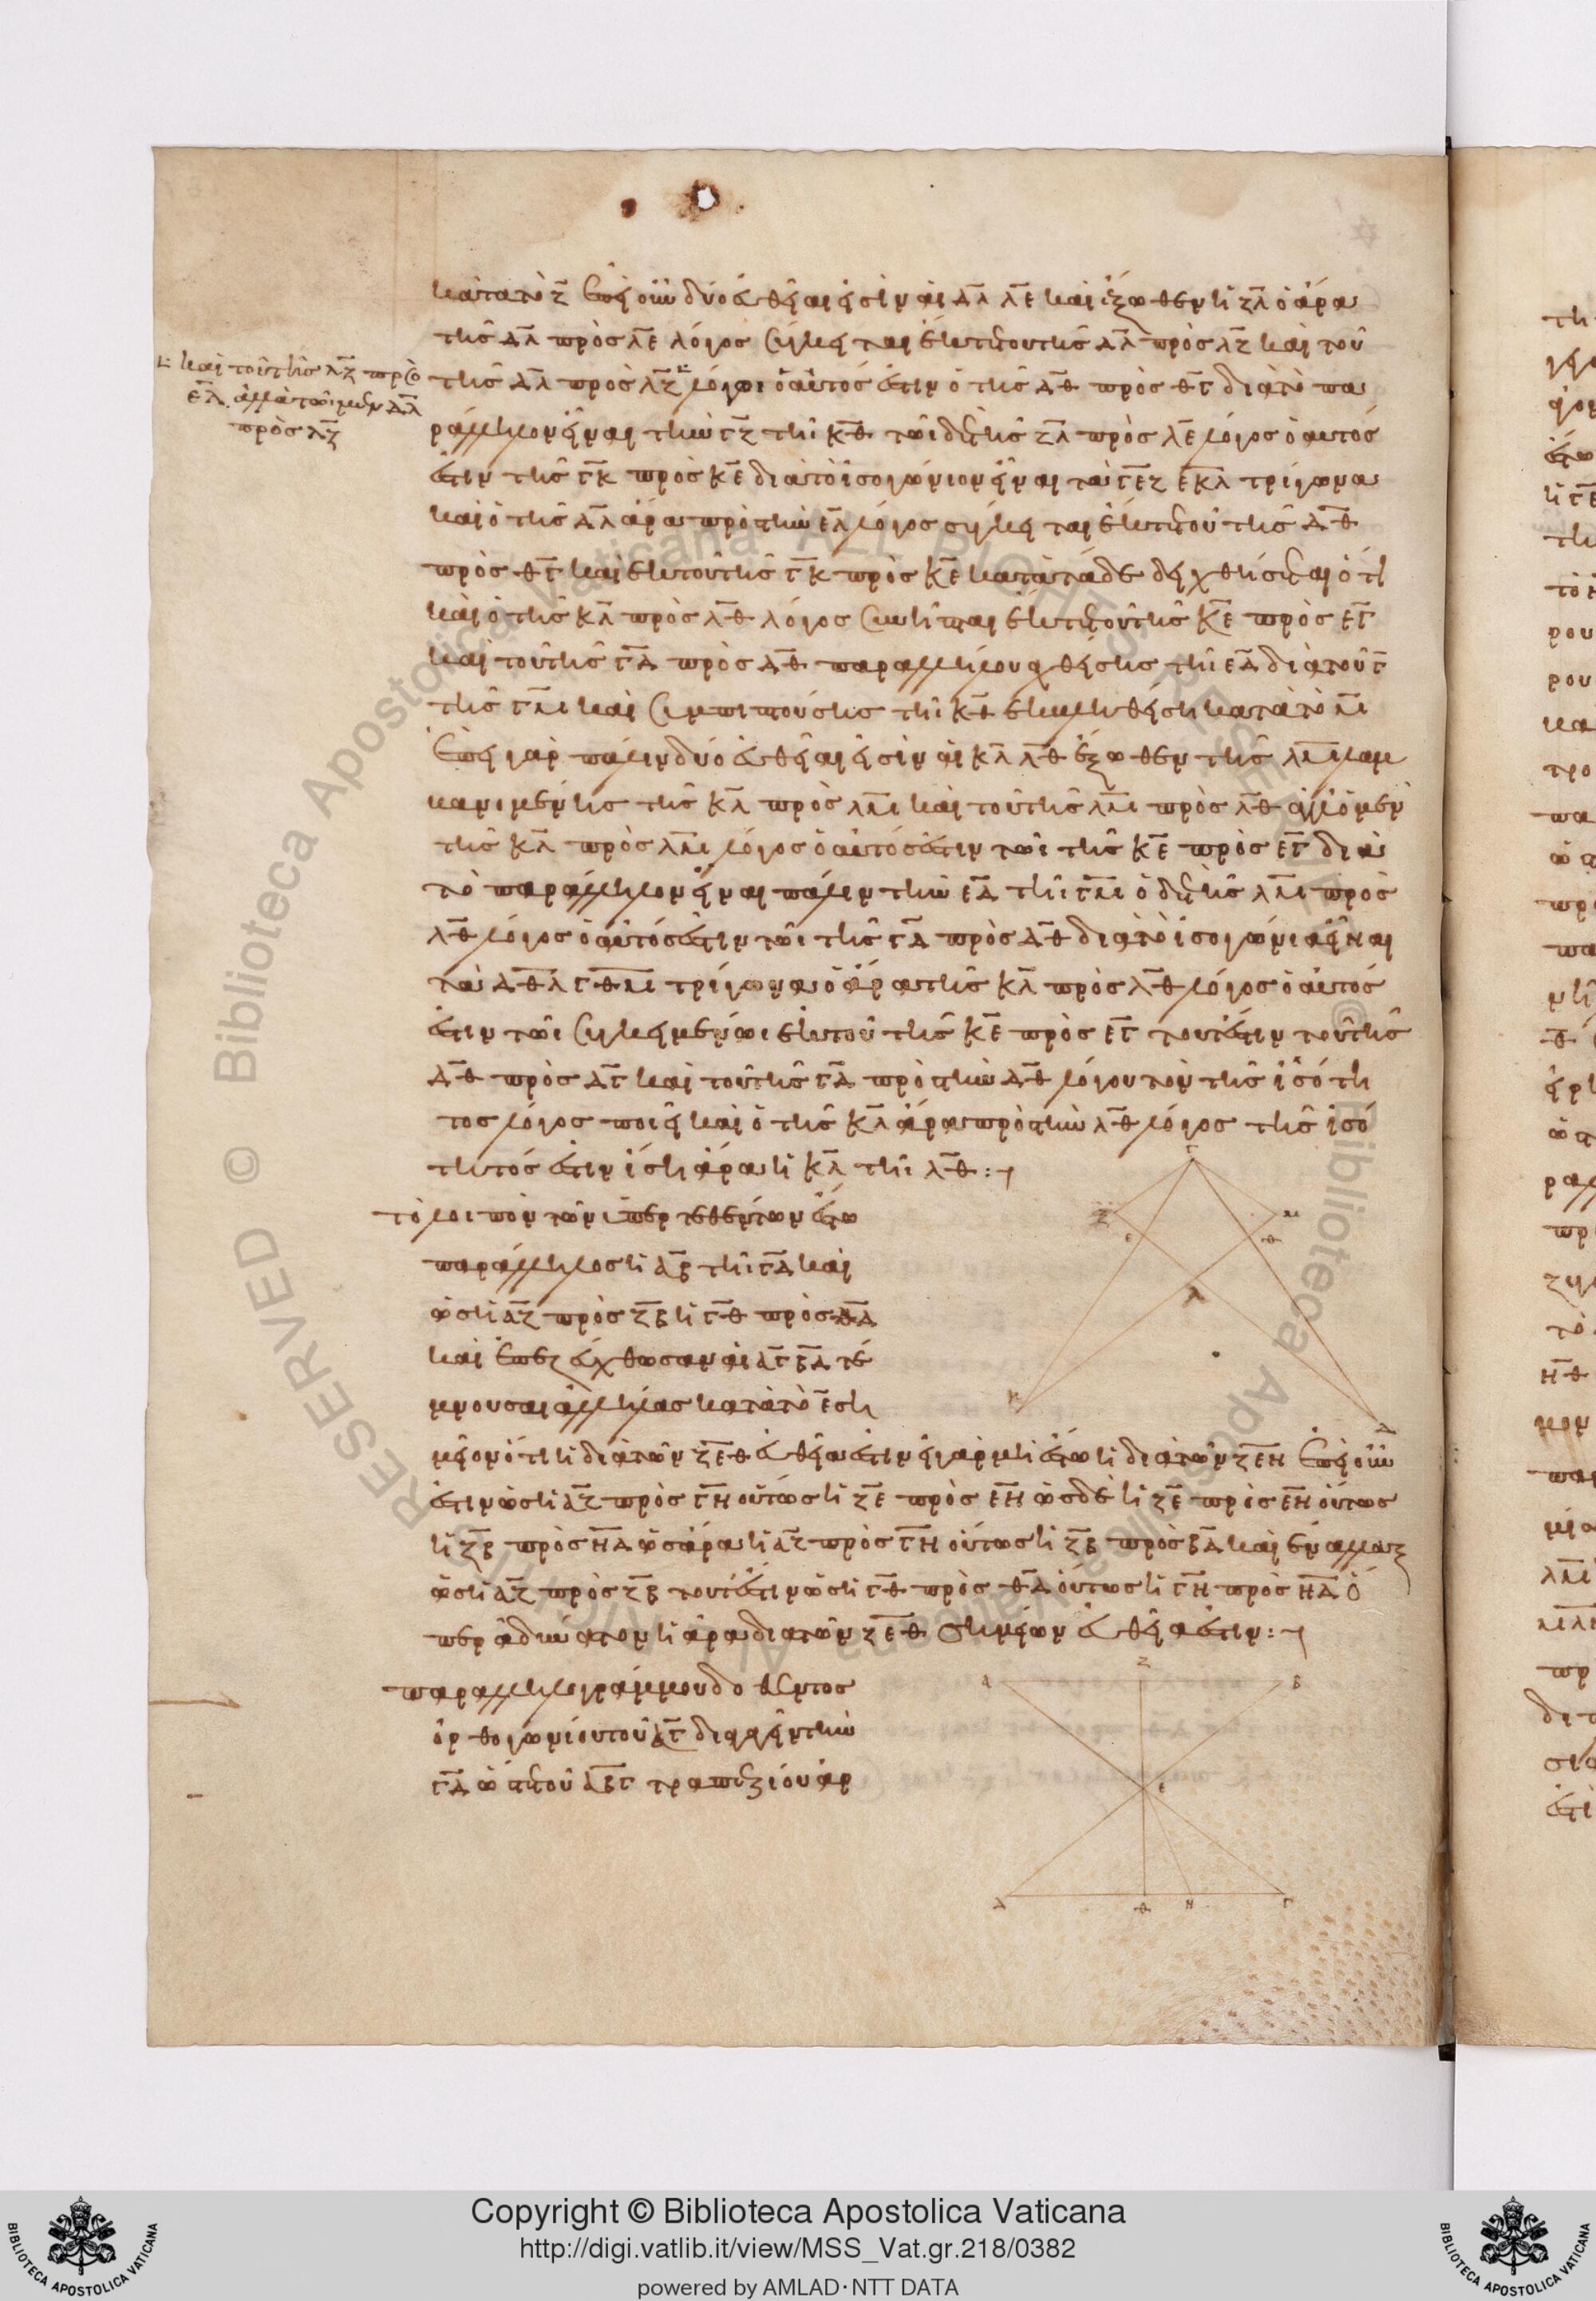 κατὰ τὸ Ζ ἐπεὶ οὖν δύο εὐθεῖαι εἰσὶν αἱ ΔΛ ΛΕ καὶ ἔξωθεν ἡ ΖΛ ὁ ἄρα
τῆς ΔΛ πρὸς ΛΕ λόγος σύγκειται ἔκ τε τοῦ τῆς ΔΛ πρὸς ΛΖ καὶ τοῦ
καὶ τοῦ τῆς ΛΖ πρὸς
ΕΛ ἀλλὰ τῶι μὲν ΔΛ
πρὸς ΛΖ
τῆς ΔΛ πρὸς ΛΖ λόγωι ὁ αὐτός ἐστιν ὁ τῆς ΔΘ πρὸς ΘΓ διὰ τὸ πα
ράλληλον εἶναι τὴν ΓΖ τῆι ΚΘ τῶι δὲ τῆς ΖΛ πρὸς ΛΕ λόγος ὁ αὐτός
ἐστιν τῆς ΓΚ πρὸς ΚΕ διὰ τὸ ἰσογώνιον εἶναι τὰ ΓΕΖ ΕΚΛ τρίγωνα
καὶ ὁ τῆς ΔΛ ἄρα πρὸς τὴν ΕΛ λόγος σύγκειται ἔκ τε τοῦ τῆς ΔΘ
πρὸς ΘΓ καὶ ἐκ τοῦ τῆς ΓΚ πρὸς ΚΕ κατὰ τάδε δειχθήσεται ὅτι
καὶ ὁ τῆς ΚΛ πρὸς ΛΘ λόγος συνῆπται ἔκ τε τοῦ τῆς ΚΕ πρὸς ΕΓ
καὶ τοῦ τῆς ΓΔ πρὸς ΔΘ παραλλήλου ἀχθείσης τῆι ΕΔ διὰ τοῦ Γ
τῆς ΓΜ καὶ συμπιπτούσης τῆι ΚΘ ἐκβληθείσηι κατὰ τὸ Μ
ἐπεὶ γὰρ πάλιν δύο εὐθεῖαι εἰσὶν αἱ ΚΛ ΛΘ ἔξωθεν τῆς ΛΜ λαμ
βανομένης τῆς ΚΛ πρὸς ΛΜ καὶ τοῦ τῆς ΛΜ πρὸς ΛΘ ἀλλ ὁ μὲν
τῆς ΚΛ πρὸς ΛΜ λόγος ὁ αὐτός ἐστιν τῶι τῆς ΚΕ πρὸς ΕΓ διὰ
τὸ παράλληλον εἶναι πάλιν τὴν ΕΔ τῆι ΓΜ ὁ δὲ τῆς ΛΜ πρὸς
ΛΘ λόγος ὁ αὐτός ἐστιν τῶι τῆς ΓΔ πρὸς ΔΘ διὰ τὸ ἰσογώνια εἶναι
τὰ ΔΘΛ ΓΘΜ τρίγωνα ὁ ἄρα τῆς ΚΛ πρὸς ΛΘ λόγος ὁ αὐτός
ἐστιν τῶι συγκειμένωι ἐκ τοῦ τῆς ΚΕ πρὸς ΕΓ τουτέστιν τοῦ τῆς
ΔΘ πρὸς ΔΓ καὶ τοῦ τῆς ΓΔ πρὸς τὴν ΔΘ λόγου τὸν τῆς ἰσότη
τος λόγος ποιεῖ καὶ ὁ τῆς ΚΛ ἄρα πρὸς τὴν ΛΘ λόγος τῆς ἰσό
τητός ἐστιν ἴση ἄρα ἡ ΚΛ τῆι ΛΘ :
Γ
Ζ Μ
Ε Θ
Λ
Κ
Δ
τὸ λοιπὸν τῶν ὑπερτεθέντων ἔστω
παράλληλος ἡ ΑΒ τῆι ΓΔ καὶ
ὡς ἡ ΑΖ πρὸς ΖΒ ἡ ΓΘ πρὸς ΘΔ
καὶ ἐπεζεύχθωσαν αἱ ΑΓ ΒΔ τέ
μνουσαι ἀλλήλας κατὰ τὸ Ε ση
μεῖον ὅτι ἡ διὰ τῶν ΖΕΘ εὐθεῖα ἐστιν εἰ γὰρ μὴ ἔστω ἡ διὰ τῶν ΖΕΗ ἐπεὶ οὖν
ἐστιν ὡς ἡ ΑΖ πρὸς ΓΗ οὕτως ἡ ΖΕ πρὸς ΕΗ ὡς δὲ ἡ ΖΕ πρὸς ΕΗ οὕτως
ἡ ΖΒ πρὸς ΗΔ ὡς ἄρα ἡ ΑΖ πρὸς ΓΗ οὕτως ἡ ΖΒ πρὸς ΒΔ καὶ ἐναλλὰξ
ὡς ἡ ΑΖ πρὸς ΖΒ τουτέστιν ὡς ἡ ΓΘ πρὸς ΘΔ οὕτως ἡ ΓΗ πρὸς ΗΔ ὅ
περ ἀδύνατον ἡ ἄρα διὰ τῶν ΖΕΘ σημείων εὐθεῖα ἐστιν :
παραλληλογράμμου δοθέντος
ὀρθογωνίου τοῦ ΑΓ διαγαγεῖν τὴν
ΓΔ ὥστε τοῦ ΑΒΓ τραπεζίου ἄρ
Α Ζ Β
Ε
Δ Θ Η Γ
RESERVED © Biblioteca Apostolica Vaticana ALL RIGHTS RESERVED © Biblioteca Apostolica Vaticana ALL RIGHTS
Copyright © Biblioteca Apostolica Vaticana
http://digi.vatlib.it/view/MSS_Vat.gr.218/0382
powered by AMLAD·NTT DATA
BIBLIOTECA APOSTOLICA VATICANA
BIBLIOTECA APOSTOLICA VATICANA